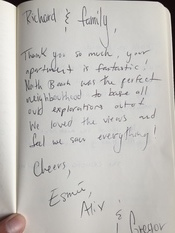 Richard & family,
Thank you so much, your
apartment is fantastic!
North Beach was the perfect
neighbourhood to base all
our explorations out of
We loved the views and
feel we saw everything!
Cheers,
Esmée,
Alix &
Gregor